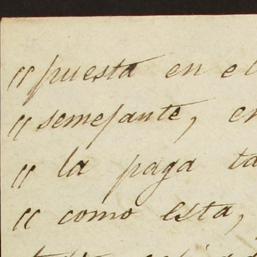 "puesta en el
"semejante, en
" la paga ta
" como esta,